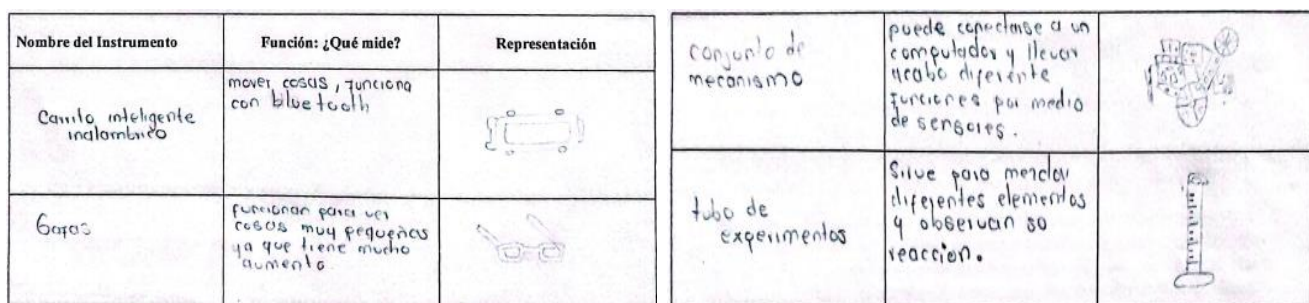 Nombre del Instrumento
Función: ¿Qué mide?
Representación
Carrito inteligente
inalambrico
mover cosas, funciona
con bluetooth
Gafas
funcionan para ver
cosas muy pequeñas
ya que tiene mucho
aumento.
conjunto de
mecanismo
puede conectarse a un
computador y llevar
acabo diferente
funciones por medio
de sensores.
tubo de
experimentos
Sirve para mezclar
diferentes elementos
y observan so
reacción.